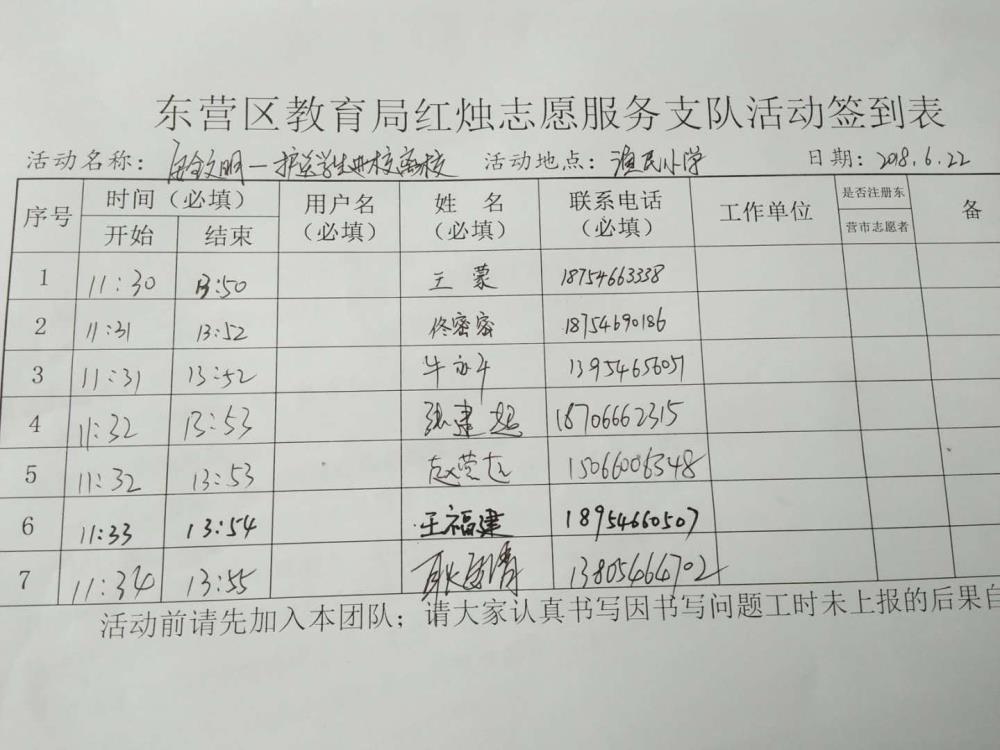 东营区教育局红烛志愿服务支队活动签到表
活动名称：安全文明一护送学生进校离校 活动地点：渔民小学 日期：2018.6.22
序号 时间（必填） 用户名（必填） 姓 名（必填） 联系电话（必填） 工作单位 是否注册东营市志愿者 备
开始 结束
1 11:30 13:50 王蒙 18754663338
2 11:31 13:52 佟密密 18754690186
3 11:31 13:52 牛 13954656051
4 11:32 13:53 张建超 18706662315
5 11:32 13:53 赵营 15066006348
6 11:33 13:54 王福建 18954660507
7 11:34 13:55 耿 13805464702
活动前请先加入本团队；请大家认真书写因书写问题工时未上报的后果自